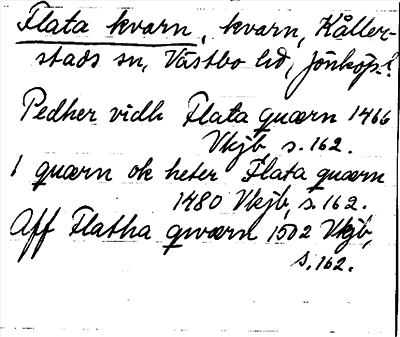 Flata kvarn, kvarn, Kåller-
stads sn, Västbo hd, Jönköp.l.
Pedher vidh Flata quærn 1466
Vkjb, s.162.
1 quærn ok heter Flata quærn
1480 Vkjb, s.162.
Aff Flatha qwærn 1502 Vkjb,
s.162.